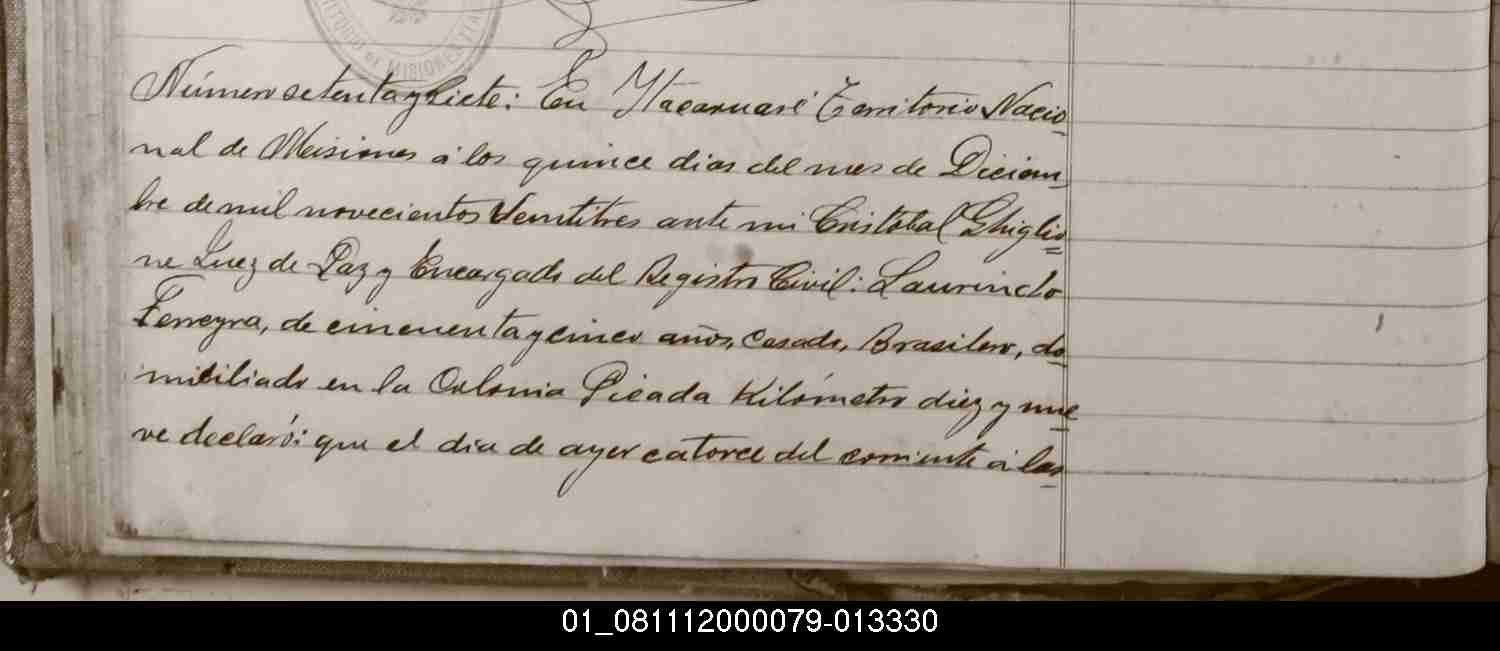 TORIO DE MISIONES
Número setenta y siete: En Itacaruaré Territorio Nacio
nal de Misiones á los quince dias del mes de Diciem
bre de mil novecientos Veintitres ante mi Cristobal Ghiglio
ne Juez de Paz y Encargado del Registro Civil: Laurindo
Ferreyra, de cincuenta y cinco años, Casado, Brasilero, do
miciliado en la Colonia Picada Kilómetro diez y nue
ve declaró: que el dia de ayer catorce del corriente á las
01_081112000079-013330